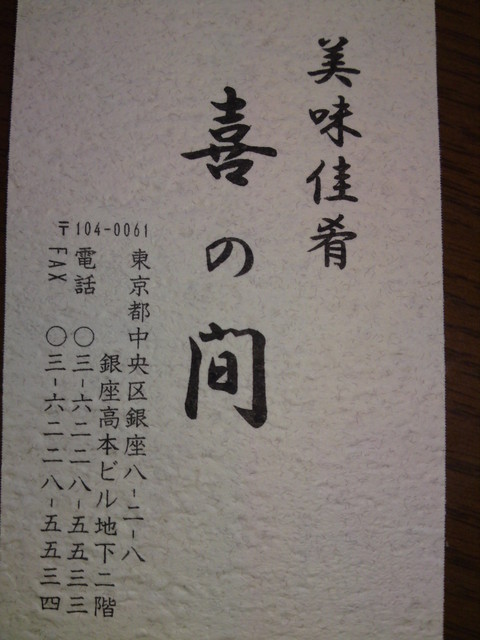 美味佳肴
喜の间
〒104-0061
東京都中央区銀座八-二-八
銀座高本ビル地下二階
電話 〇三-六二二八-五五三三
FAX 〇三-六二二八-五五三四